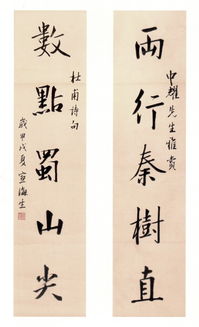 中耀先生雅賞
両行秦樹直
數點蜀山尖
杜甫詩句
歲甲戌夏宣海生